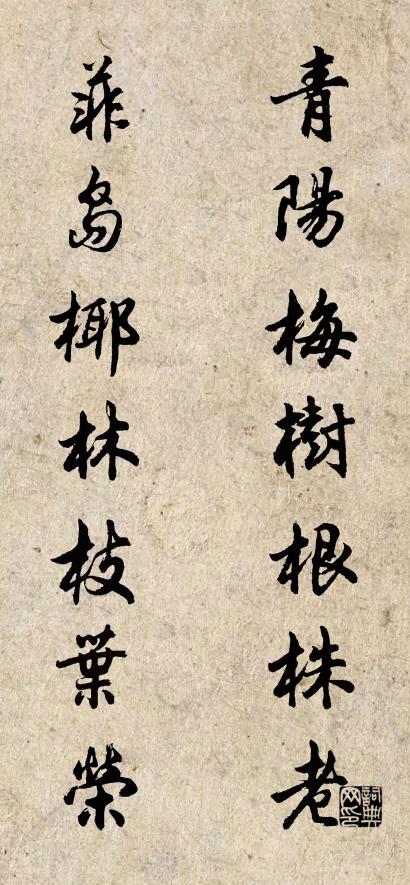 青陽梅樹根株老
菲島椰林枝葉榮
詞典網印